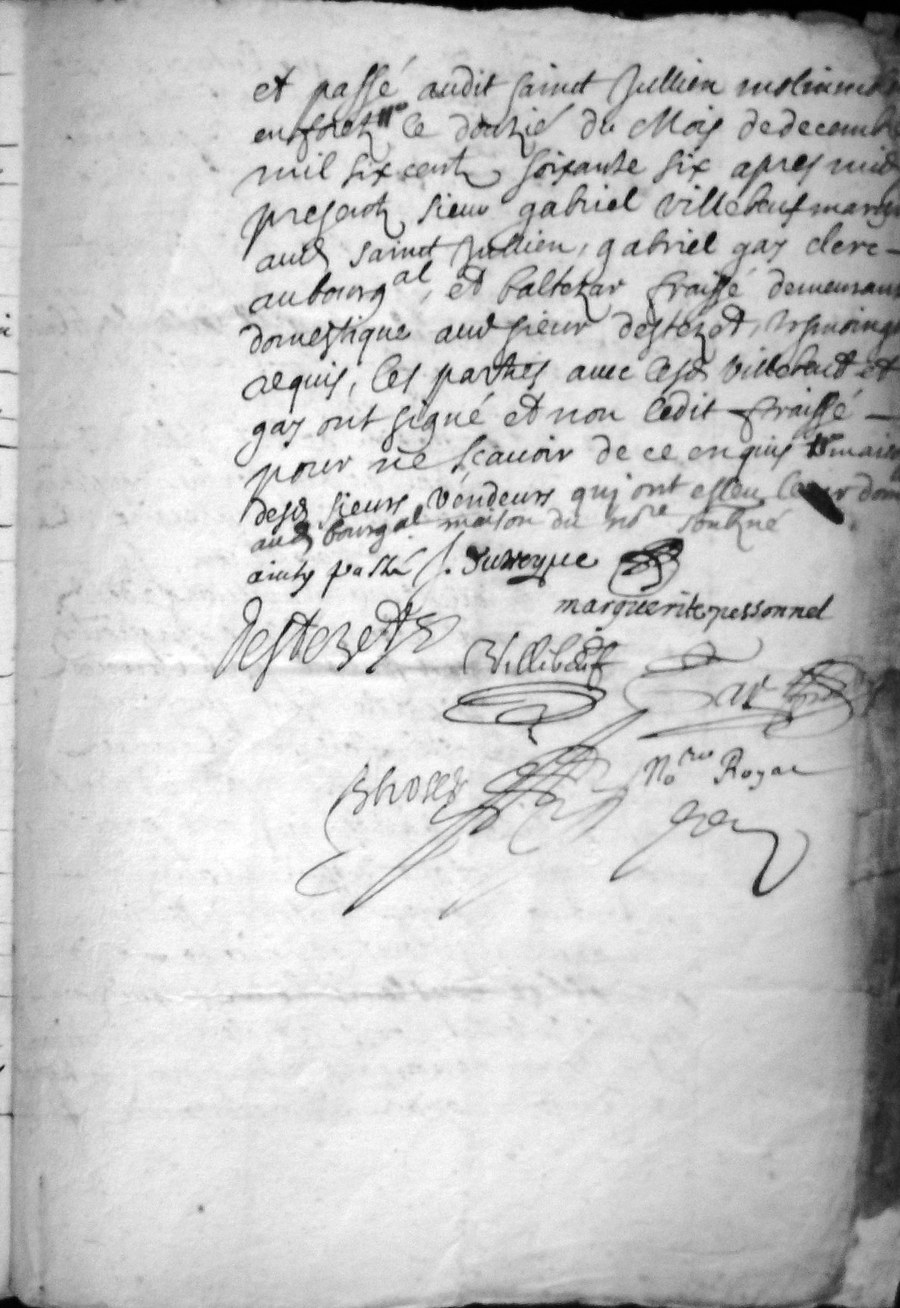 et passé audit sainct Jullien molinmol
en forez le douzié du Mois de decembre
mil six cent soixante six apres midi
presentz sieur gabriel villebeuf march
aud sainct Jullien, gabriel gay clerc
au bourgal, et baltezar fraissé demeurant
domestique aud sieur destezet, tesmoingz
requis, les parties avec lesd villebeuf et
gay ont signé et non ledit fraissé
pour ne sçavoir de ce enquis
desd sieurs vendeurs qui ont esleu leur dom
aud bourgal maison du nore soubzné
ainsy passé J. Duveyne
marguerite pessonnel
destezet
Villebeuf
Gay
Nore Royal